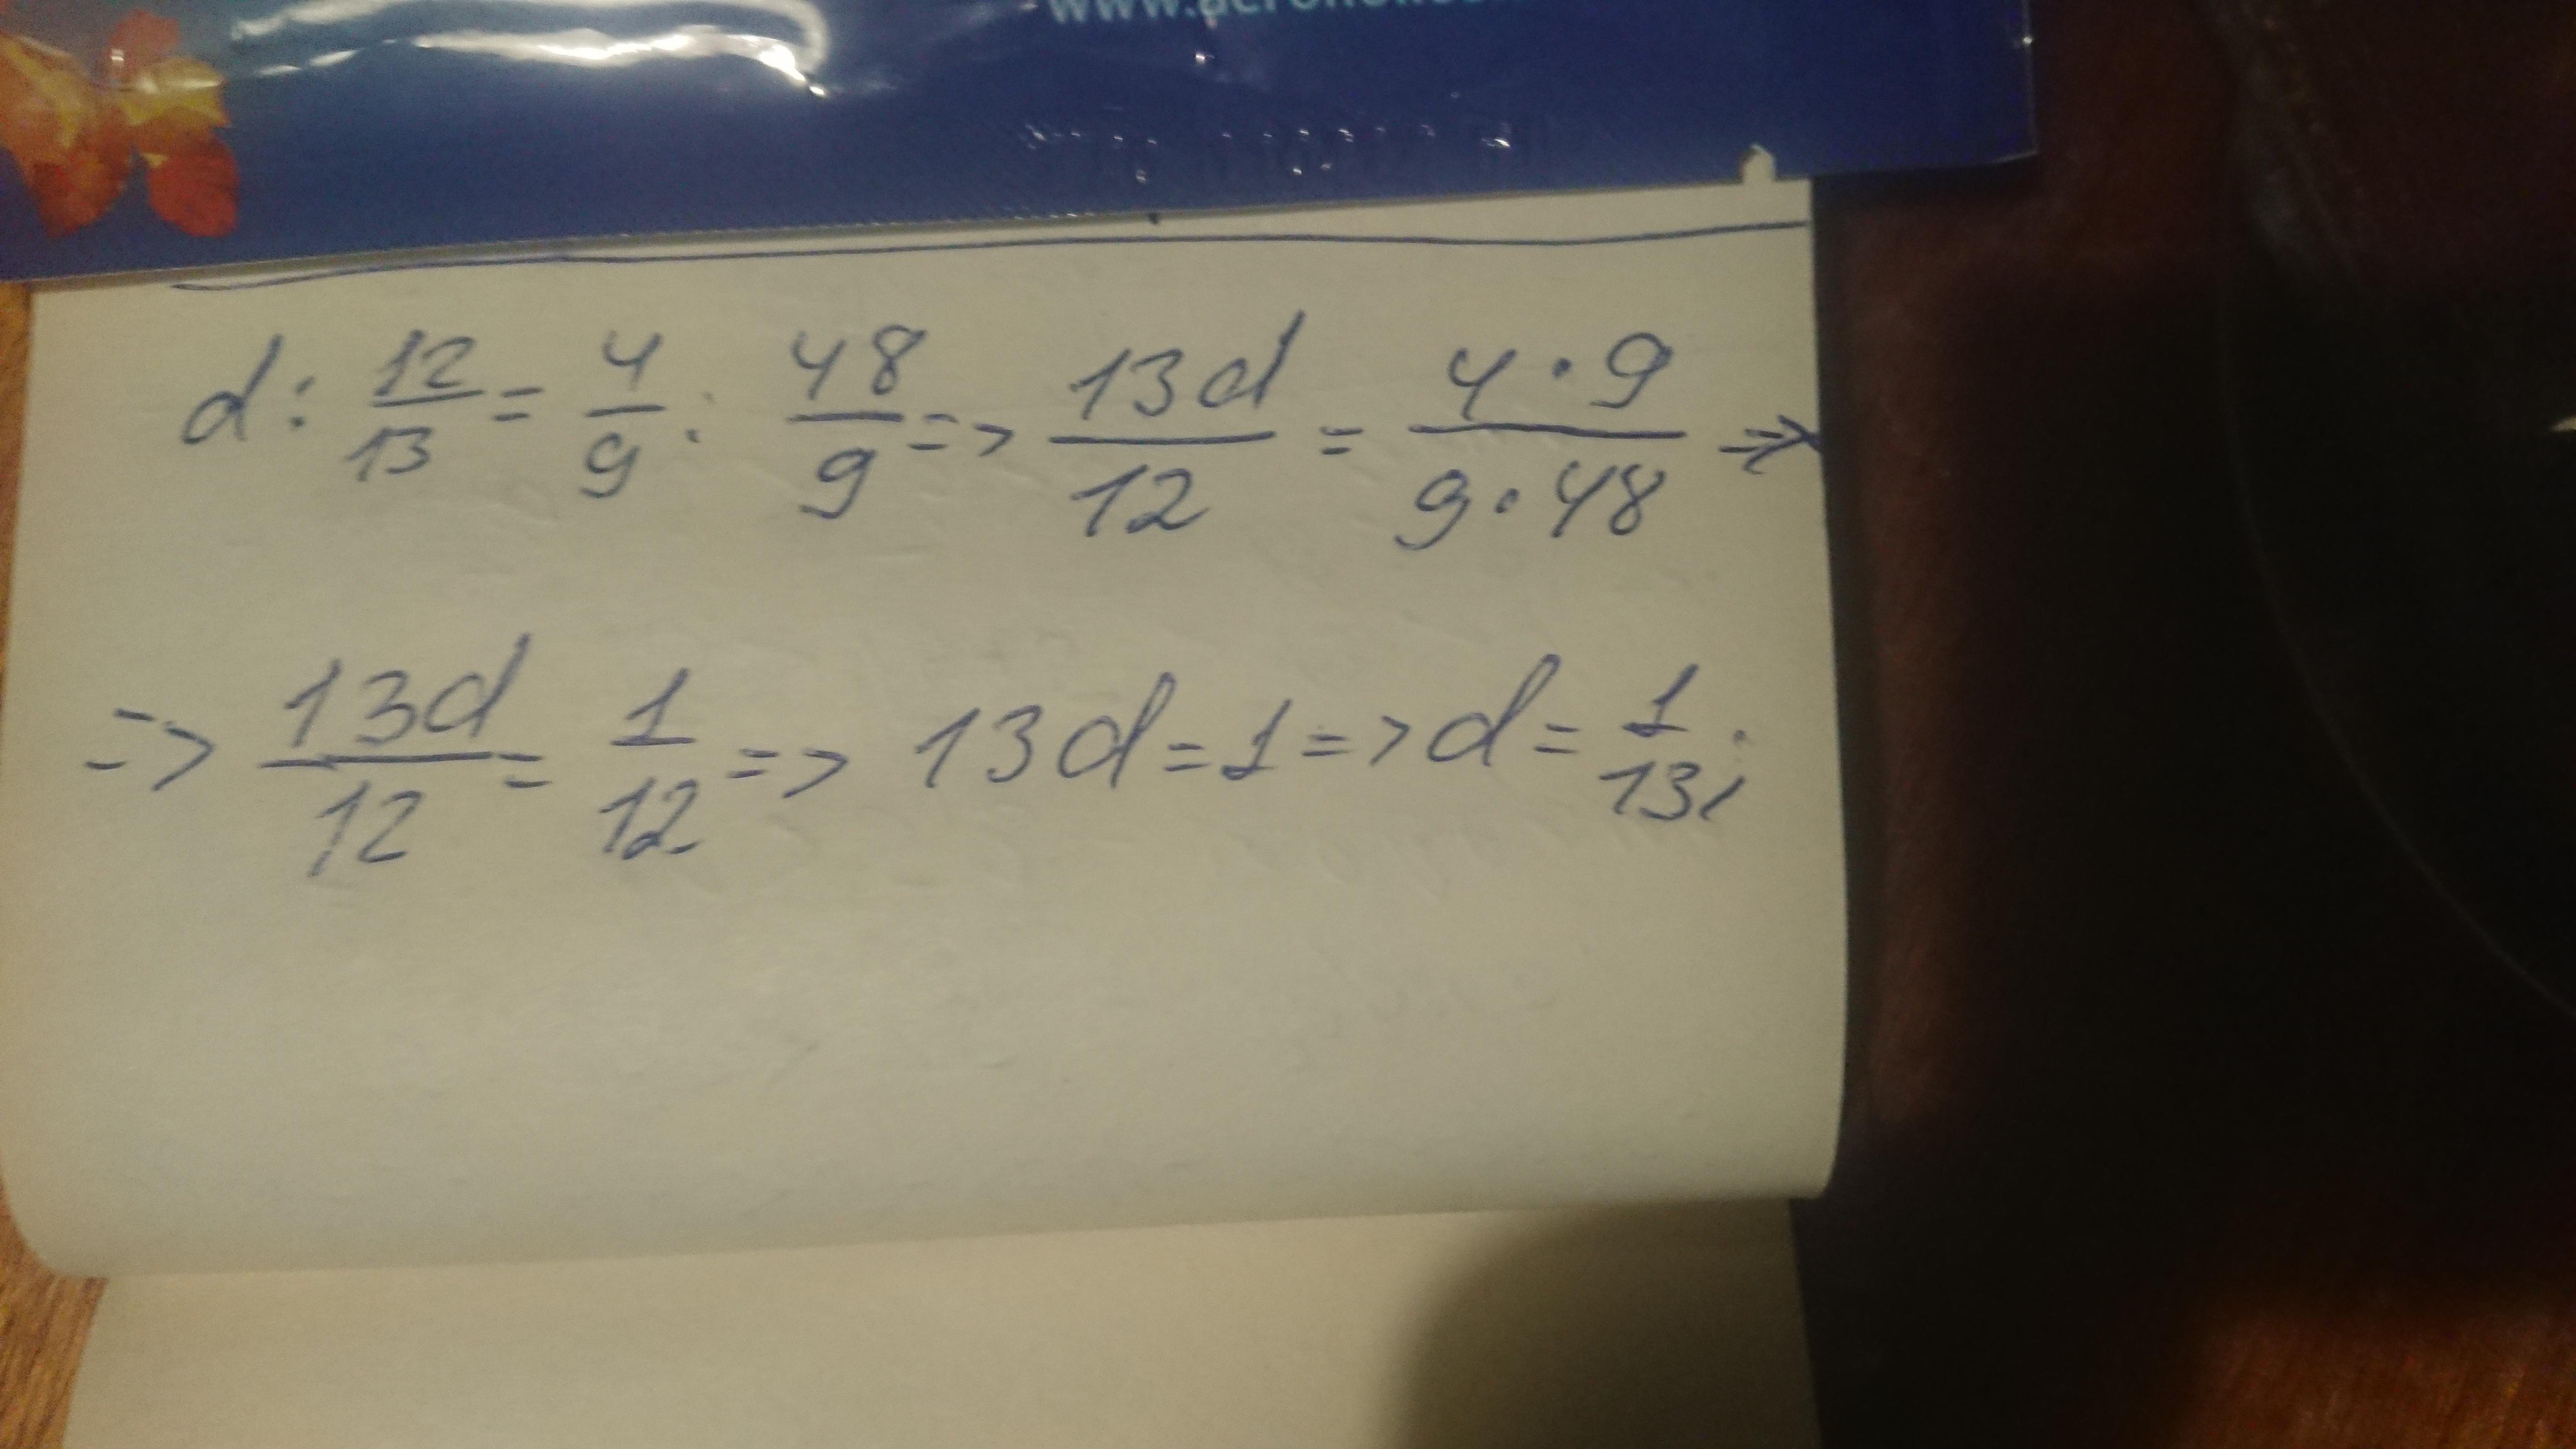 d : 12/13 = 4/9 : 48/9 => 13d/12 = 4·9/9·48 =>
=> 13d/12 = 1/12 => 13d = 1 => d = 1/13;